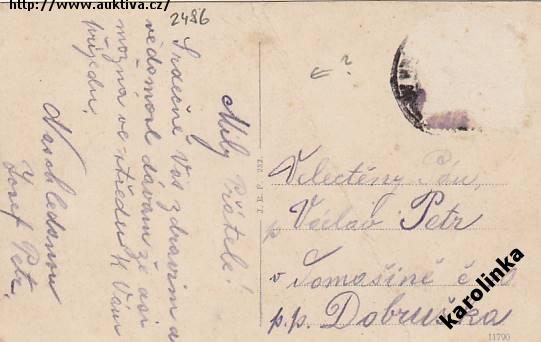 http://www.auktiva.cz/
2486
Milý Příteli!
Srdečně Vás zdravím a
vědomost dávám že asi
možná ve středu k Vám
přijedu.
Nashledanou
Josef Petr.
?
Velectěný Pán,
p Václav Petr
v Tomašíně č
p.p. Dobruška
11790
karolinka